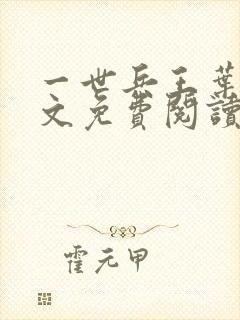 一世兵王葉
文免費閱讀
霍元甲